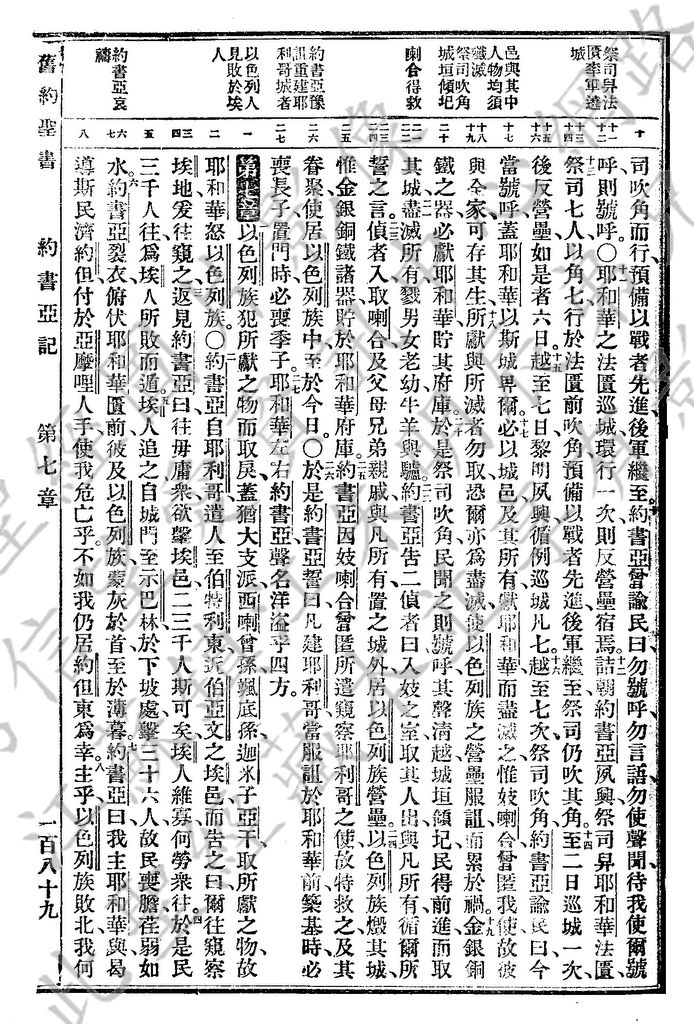 舊約聖書 約書亞記 第七章 一百八十九
祭司舁法
匱率軍遶
城
邑與其中
人物均須
殲滅
祭司吹角
城垣傾圮
喇合得救
約書亞豫
詛重建耶
利哥城者
以色列人
見敗於埃
人
約書亞哀
禱
十
十一
十二
十三
十四
十五
十六
十七
十八
十九
二十
二一
二二
二三
二四
二五
二六
二七
一
二
三
四
五
六
七
八
司吹角而行、預備以戰者先進、後軍繼至、約書亞曾諭民曰、勿號呼、勿言語、勿使聲聞、待我使爾號
呼則號呼。〇耶和華之法匱巡城環行一次、則反營壘宿焉。詰朝約書亞夙興、祭司舁耶和華法匱、
祭司七人、以角七、行於法匱前吹角、預備以戰者先進、後軍繼至、祭司仍吹其角、至二日巡城一次、
後反營壘、如是者六日、越至七日、黎明夙興、循例巡城凡七、越至七次、祭司吹角、約書亞諭民曰、今
當號呼、蓋耶和華以斯城畀爾、必以城邑、及其所有、獻耶和華而盡滅之、惟妓喇合曾匿我使、故彼
與全家可存其生、所獻與所滅者勿取、恐爾亦為盡滅、使以色列族之營壘服詛、而累於禍、金銀銅
鐵之器、必獻耶和華、貯其府庫、於是祭司吹角、民聞之則號呼、其聲清越、城垣傾圮、民得前進而取
其城、盡滅所有、戮男女老幼、牛羊與驢、約書亞告二偵者曰、入妓之室、取其人出、與凡所有、循爾所
誓之言、偵者入、取喇合及父母兄弟親戚、與凡所有、置之城外、居以色列族營壘、以色列族燬其城、
惟金銀銅鐵諸器、貯於耶和華府庫、約書亞因妓喇合曾匿所遣窺察耶利哥之使、故特救之、及其
眷聚、使居以色列族中、至於今日。〇於是約書亞誓曰、凡建耶利哥、當服詛於耶和華前、築基時必
喪長子、置門時必喪季子、耶和華左右約書亞、聲名洋溢乎四方。
第七章 以色列族犯所獻之物而取戾、蓋猶大支派、西喇曾孫、颯底孫、迦米子、亞干取所獻之物、故
耶和華怒以色列族。〇約書亞自耶利哥遣人至伯特利東、近伯亞文之埃邑而告之曰、爾往窺察
埃地、爰往窺之、返見約書亞曰、往毋庸衆、欲擊埃邑、二三千人斯可矣、埃人維寡、何勞衆往、於是民
三千人往、為埃人所敗而遁、埃人追之、自城門至示巴林、於下坡處、擊三十六人、故民喪膽、荏弱如
水、約書亞裂衣、俯伏耶和華匱前、彼及以色列族、蒙灰於首、至於薄暮、約書亞曰、我主耶和華與、曷
導斯民濟約但、付於亞摩哩人手、使我危亡乎、不如我仍居約但東為幸、主乎、以色列族敗北、我何